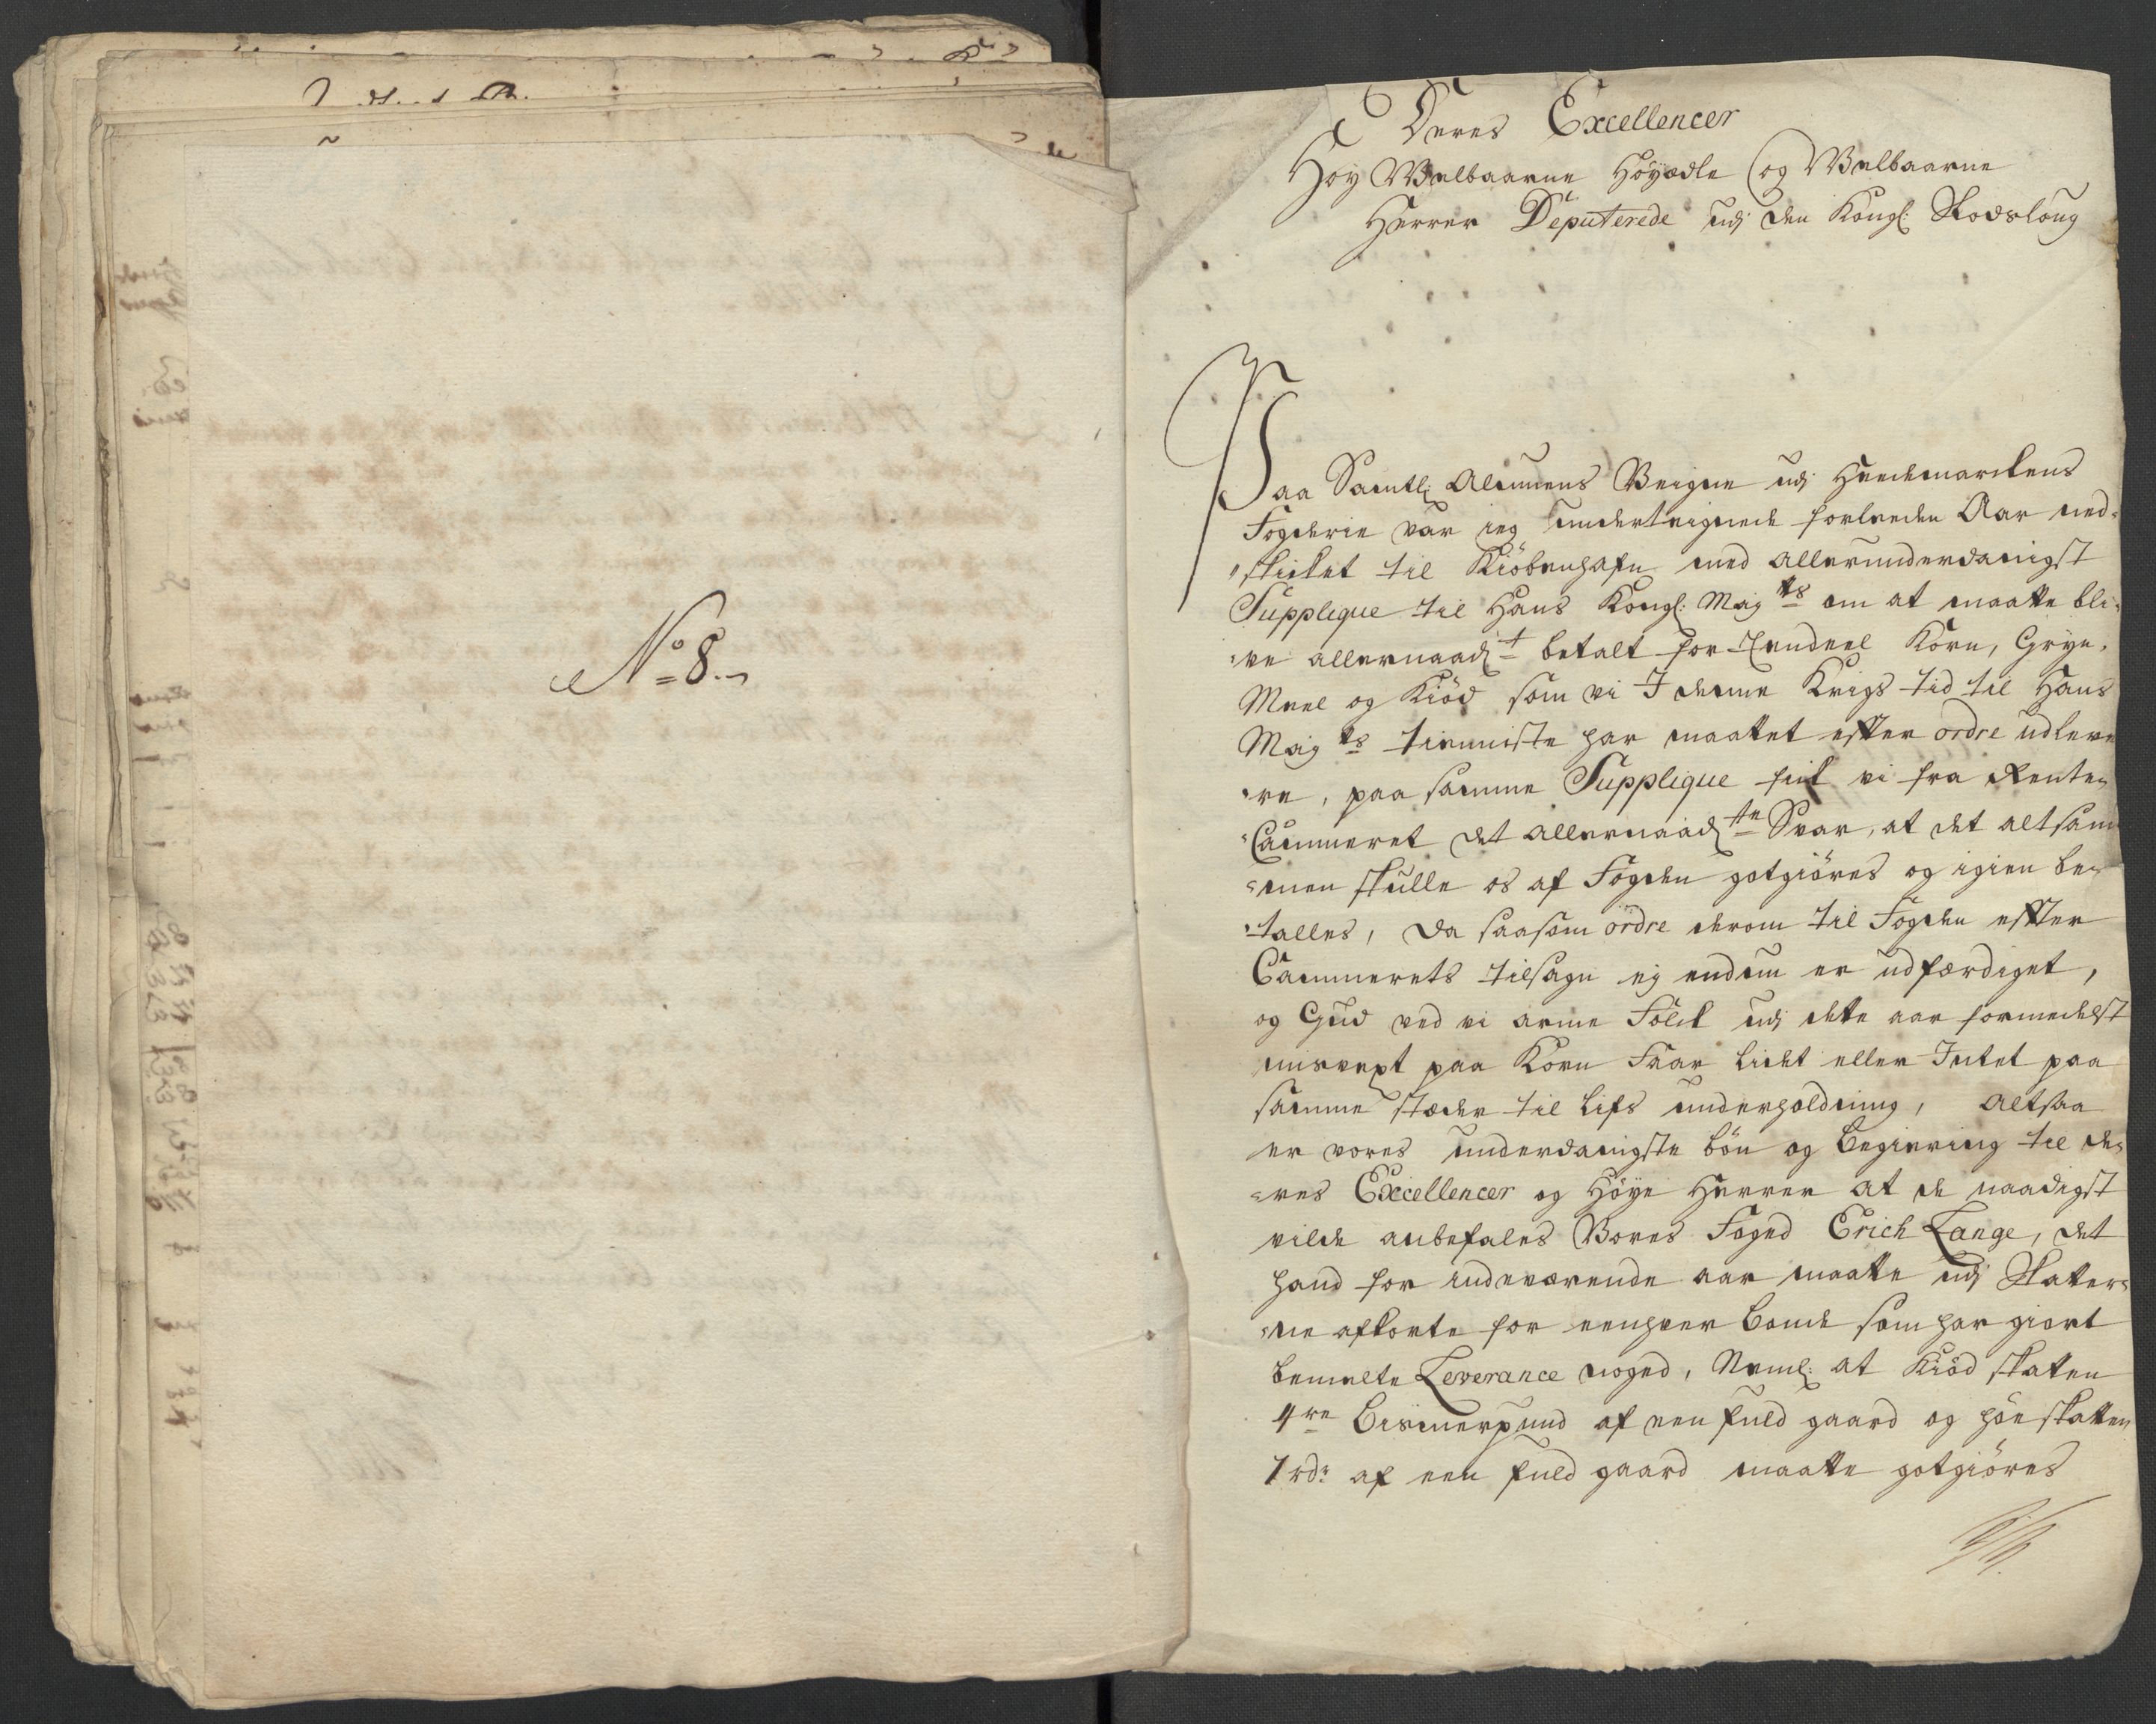 No 8.
Deres Excellencer
Høy Welbaarne Høyædle og Welbaarne
Herrer Deputerede udj den Kongl: Slodsloug
Paa Samtl: Almuens Veigne udj Heedemarckens
Fogderie var ieg underteignede forleeden Aar ned-
skicket til Kiöbenhafn med allerunderdanigst
Supplique til Hans Kongl: May ts om at maatte bli-
ve allernaad t betalt for Eendeel Korn, Gryn,
Meel og Kiöd som vi I denne Krigs tid til Hans
May ts tienniste har maattet efter ordre udleve
re, paa samme Supplique fick vi fra Rente-
Cammeret det allernaad ste Svar, at det altsam
men skulle os af Fogden gotgiöres og igien be-
talles, da saasom ordre derom til Fogden efter
Cammerets tilsagn ej endnu er udfærdiget,
og Gud ved vi arme Folck udj dette aar formedelst
misvext paa Korn Faar lidet eller Intet paa
samme stæder til Lifs underholdning, altsaa
er vores underdanigste bön og begiering til de-
res Excellencer og Høye Herrer at de naadigst
vilde anbefales Vores Foged Erich Lange, det
hand for indeværende aar maatte udj Skatter-
ne afkorte for eenhver bonde som har giort
bemelte Leverance noged, Neml: at Kiöd skatten
4re bismerpund af een fuld gaard og höe skatten
1 rdr af een fuld gaard maatte gotgiöres